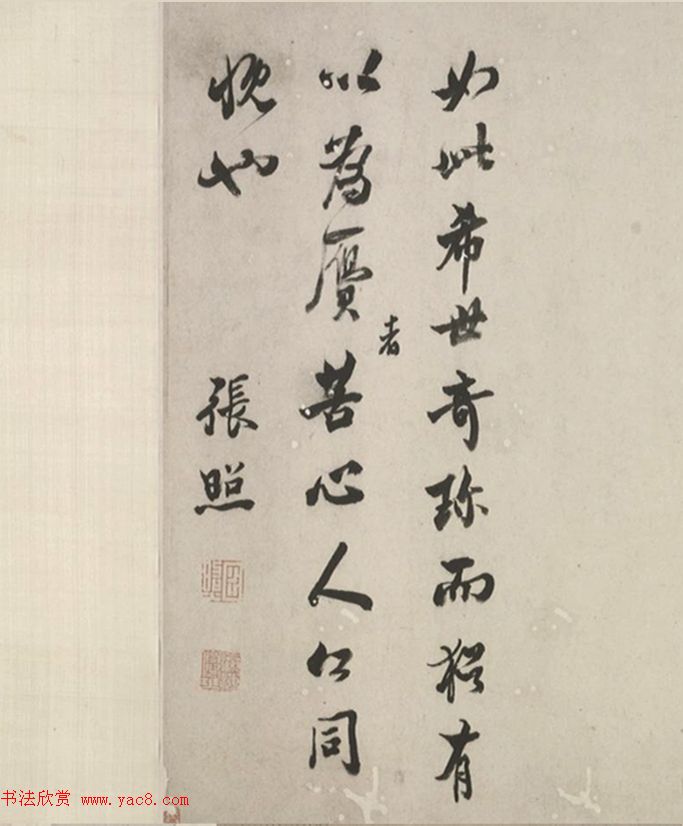 如此希世奇珍而猶有
以為贋者苦心人同
也
張照
书法欣赏 www.yac8.com